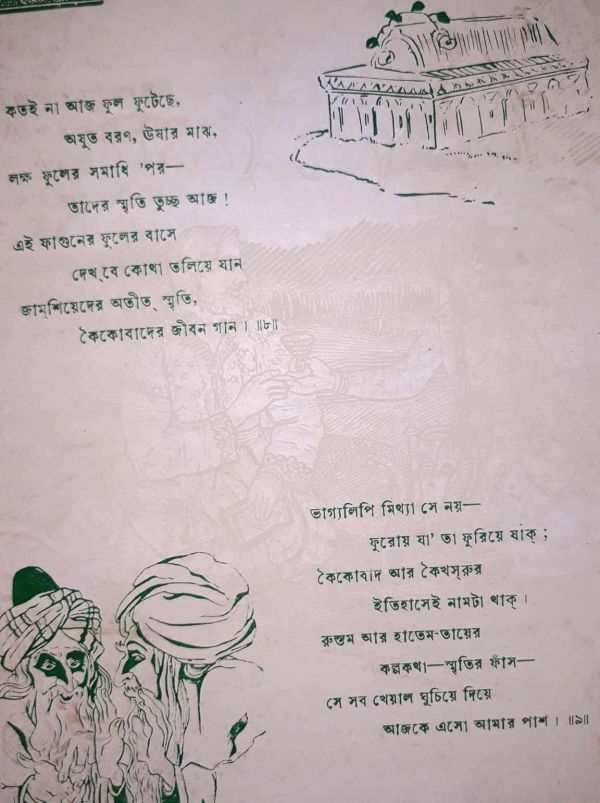 কতই না আজ ফুল ফুটেছে,
অযুত বরণ, ঊষার মাঝ,
লক্ষ ফুলের সমাধি 'পর—
তাদের স্মৃতি তুচ্ছ আজ !
এই ফাগুনের ফুলের বাসে
দেখ্‌বে কোথা তলিয়ে যান
জাম্‌শিয়েদের অতীত্‌ স্মৃতি,
কৈকোবাদের জীবন গান । ॥৮॥
ভাগ্যলিপি মিথ্যা সে নয়—
ফুরোয় যা' তা ফুরিয়ে যাক্‌ ;
কৈকোবাদ আর কৈখস্‌রুর
ইতিহাসেই নামটা থাক্‌ ।
রুস্তম আর হাতেম-তায়ের
কল্পকথা—স্মৃতির ফাঁস—
সে সব খেয়াল ঘুচিয়ে দিয়ে
আজকে এসো আমার পাশ । ॥৯॥